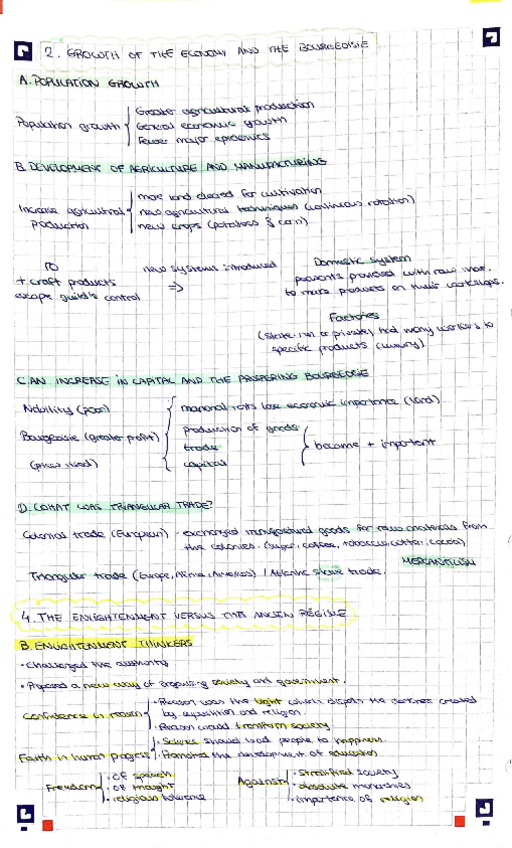 2. GROWTH OF THE ECONOMY AND THE BOURGEOISIE
A. POPULATION GROWTH
Population growth
Greater agricultural production
General economic growth
Fewer major epidemics
B. DEVELOPMENT OF AGRICULTURE AND MANUFACTURING
Increase agricultural production
more land cleared for cultivation
new agricultural techniques (continuous rotation)
new crops (potatoes & corn)
TO
+ craft products
escape guild's control
new systems introduced
=>
Domestic system
peasants provided with raw mat.
to make products on their workshops.
Factories
(state-run or private) had many workers to
specific products (luxury)
C. AN INCREASE IN CAPITAL AND THE PROSPERING BOURGEOISIE
Nobility (poor)
Bourgeoisie (greater profit)
(prices rised)
manorial rents lose economic importance (land)
production of goods
trade
capital
become + important
D. WHAT WAS TRIANGULAR TRADE?
Colonial trade (European) - exchanged manufactured goods for raw materials from
the colonies. (sugar, coffee, tobacco, cotton, cocoa)
MERCANTILISM
Triangular trade (Europe, Africa, America) / Atlantic slave trade.
4. THE ENLIGHTENMENT VERSUS THE ANCIEN RÉGIME
B. ENLIGHTENMENT THINKERS
· Challenged the authority
· Proposed a new way of organising society and government.
Confidence in reason
· Reason was the light which dispels the darkness created
by superstition and religion
· Reason would transform society.
Faith in human progress
· Science should lead people to happiness.
· Promoted the development of education
Freedom
· of speech
· of thought
· religious tolerance
Against
· Stratified society
· absolute monarchies
· importance of religion